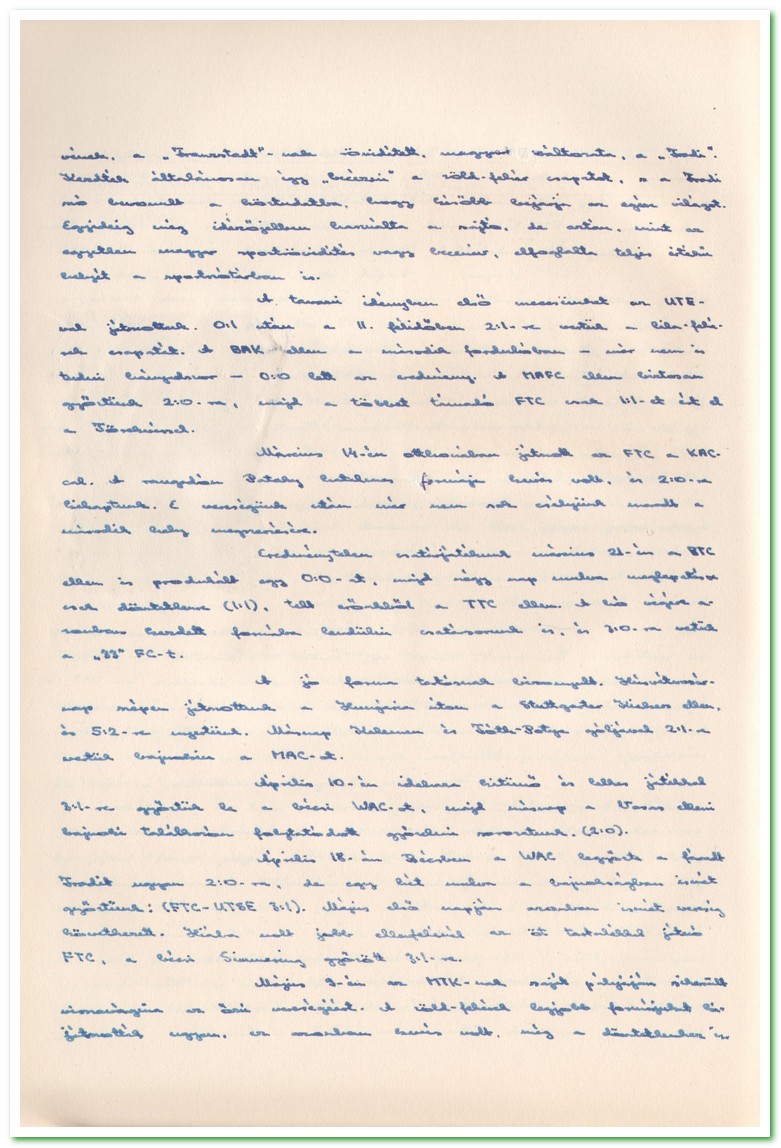 vének, a „Franzstadt"-nak rövidített, magyar változata, a „Fradi".
Kezdték általánosan így „becézni" a zöld-fehér csapatot, s a Fradi
szó bevonult a köztudatba, hogy később bejárja az egész világot.
Egyideig még idézőjelben használta a sajtó, de aztán, mint az
egyetlen magyar sportrövidítés vagy becenév, elfoglalta teljes értékű
helyét a sportszótárban is.
A tavaszi idényben első meccsünket az UTE-
val játszottuk. 0:1 után a II. félidőben 2:1-re vertük a lila-fehé-
rek csapatát. A BAK ellen a második fordulóban – már nem is
tudni hányadszor – 0:0 lett az eredmény. A MAFC ellen biztosan
győztünk 2:0-ra, majd a többet támadó FTC csak 1:1-et ért el
a Törekvéssel.
Március 14-én otthonában játszott az FTC a KAC-
cal. A rangadón Pataky hatalmas formája kevés volt, és 2:0-ra
kikaptunk. E vereségünk után már nem sok esélyünk maradt a
második hely megszerzésére.
Eredménytelen csatárjátékunk március 21-én a BTC
ellen is produkált egy 0:0-át, majd négy nap mulva meglepetésre
csak döntetlenre (1:1), telt erőnkből a TTC ellen. A hó végére a-
zonban kezdett formába lendülni csatársorunk is, és 3:0-ra vertük
a „33" FC-t.
A jó forma tartósnak bizonyult. Húsvétvasár-
nap szépen játszottunk a Hungária úton a Stuttgarter Kickers ellen,
és 5:2-re nyertünk. Másnap Kelemen és Tóth-Potya góljával 2:1-re
vertük bajnokin a MAC-ot.
Április 10-én idehaza kitünő és lelkes játékkal
3:1-re győztük le a bécsi WAC-ot, majd másnap a Vasas elleni
bajnoki találkozón folytatódott győzelmi sorozatunk. (2:0).
Április 18-án Bécsben a WAC legyőzte a fáradt
Fradit ugyan 2:0-ra, de egy hét mulva a bajnokságban ismét
győztünk: (FTC-UTSE 3:1). Május első napján azonban ismét vereség
következett. Hiába volt jobb ellenfelénél az öt tartalékkal játszó
FTC, a bécsi Simmering győzött 3:1-re.
Május 9-én az MTK-nak saját pályáján sikerült
visszavágnia az őszi vereségért. A zöld-fehérek legjobb formájukat ki-
játszották ugyan, ez azonban kevés volt, még a döntetlenhez is.